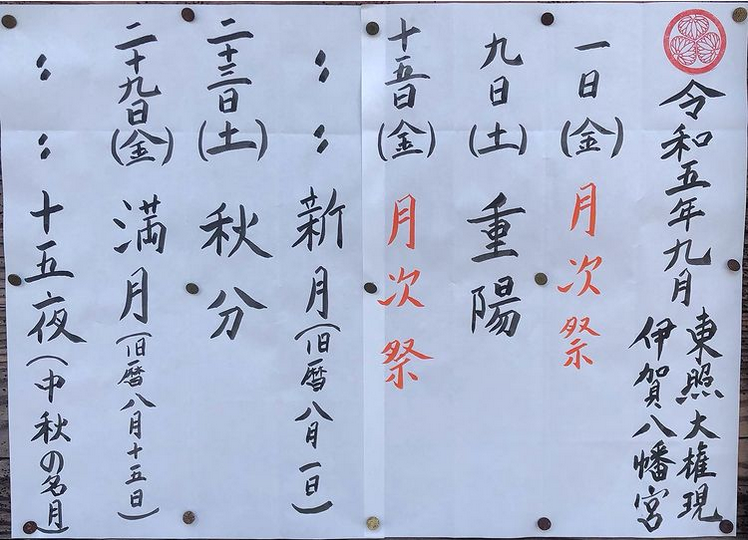 令和五年九月
東照大権現
伊賀八幡宮
一日(金) 月次祭
九日(土) 重陽
十五日(金) 月次祭
〃 〃 新月(旧暦八月一日)
二十三日(土) 秋分
二十九日(金) 満月(旧暦八月十五日)
〃 〃 十五夜(中秋の名月)